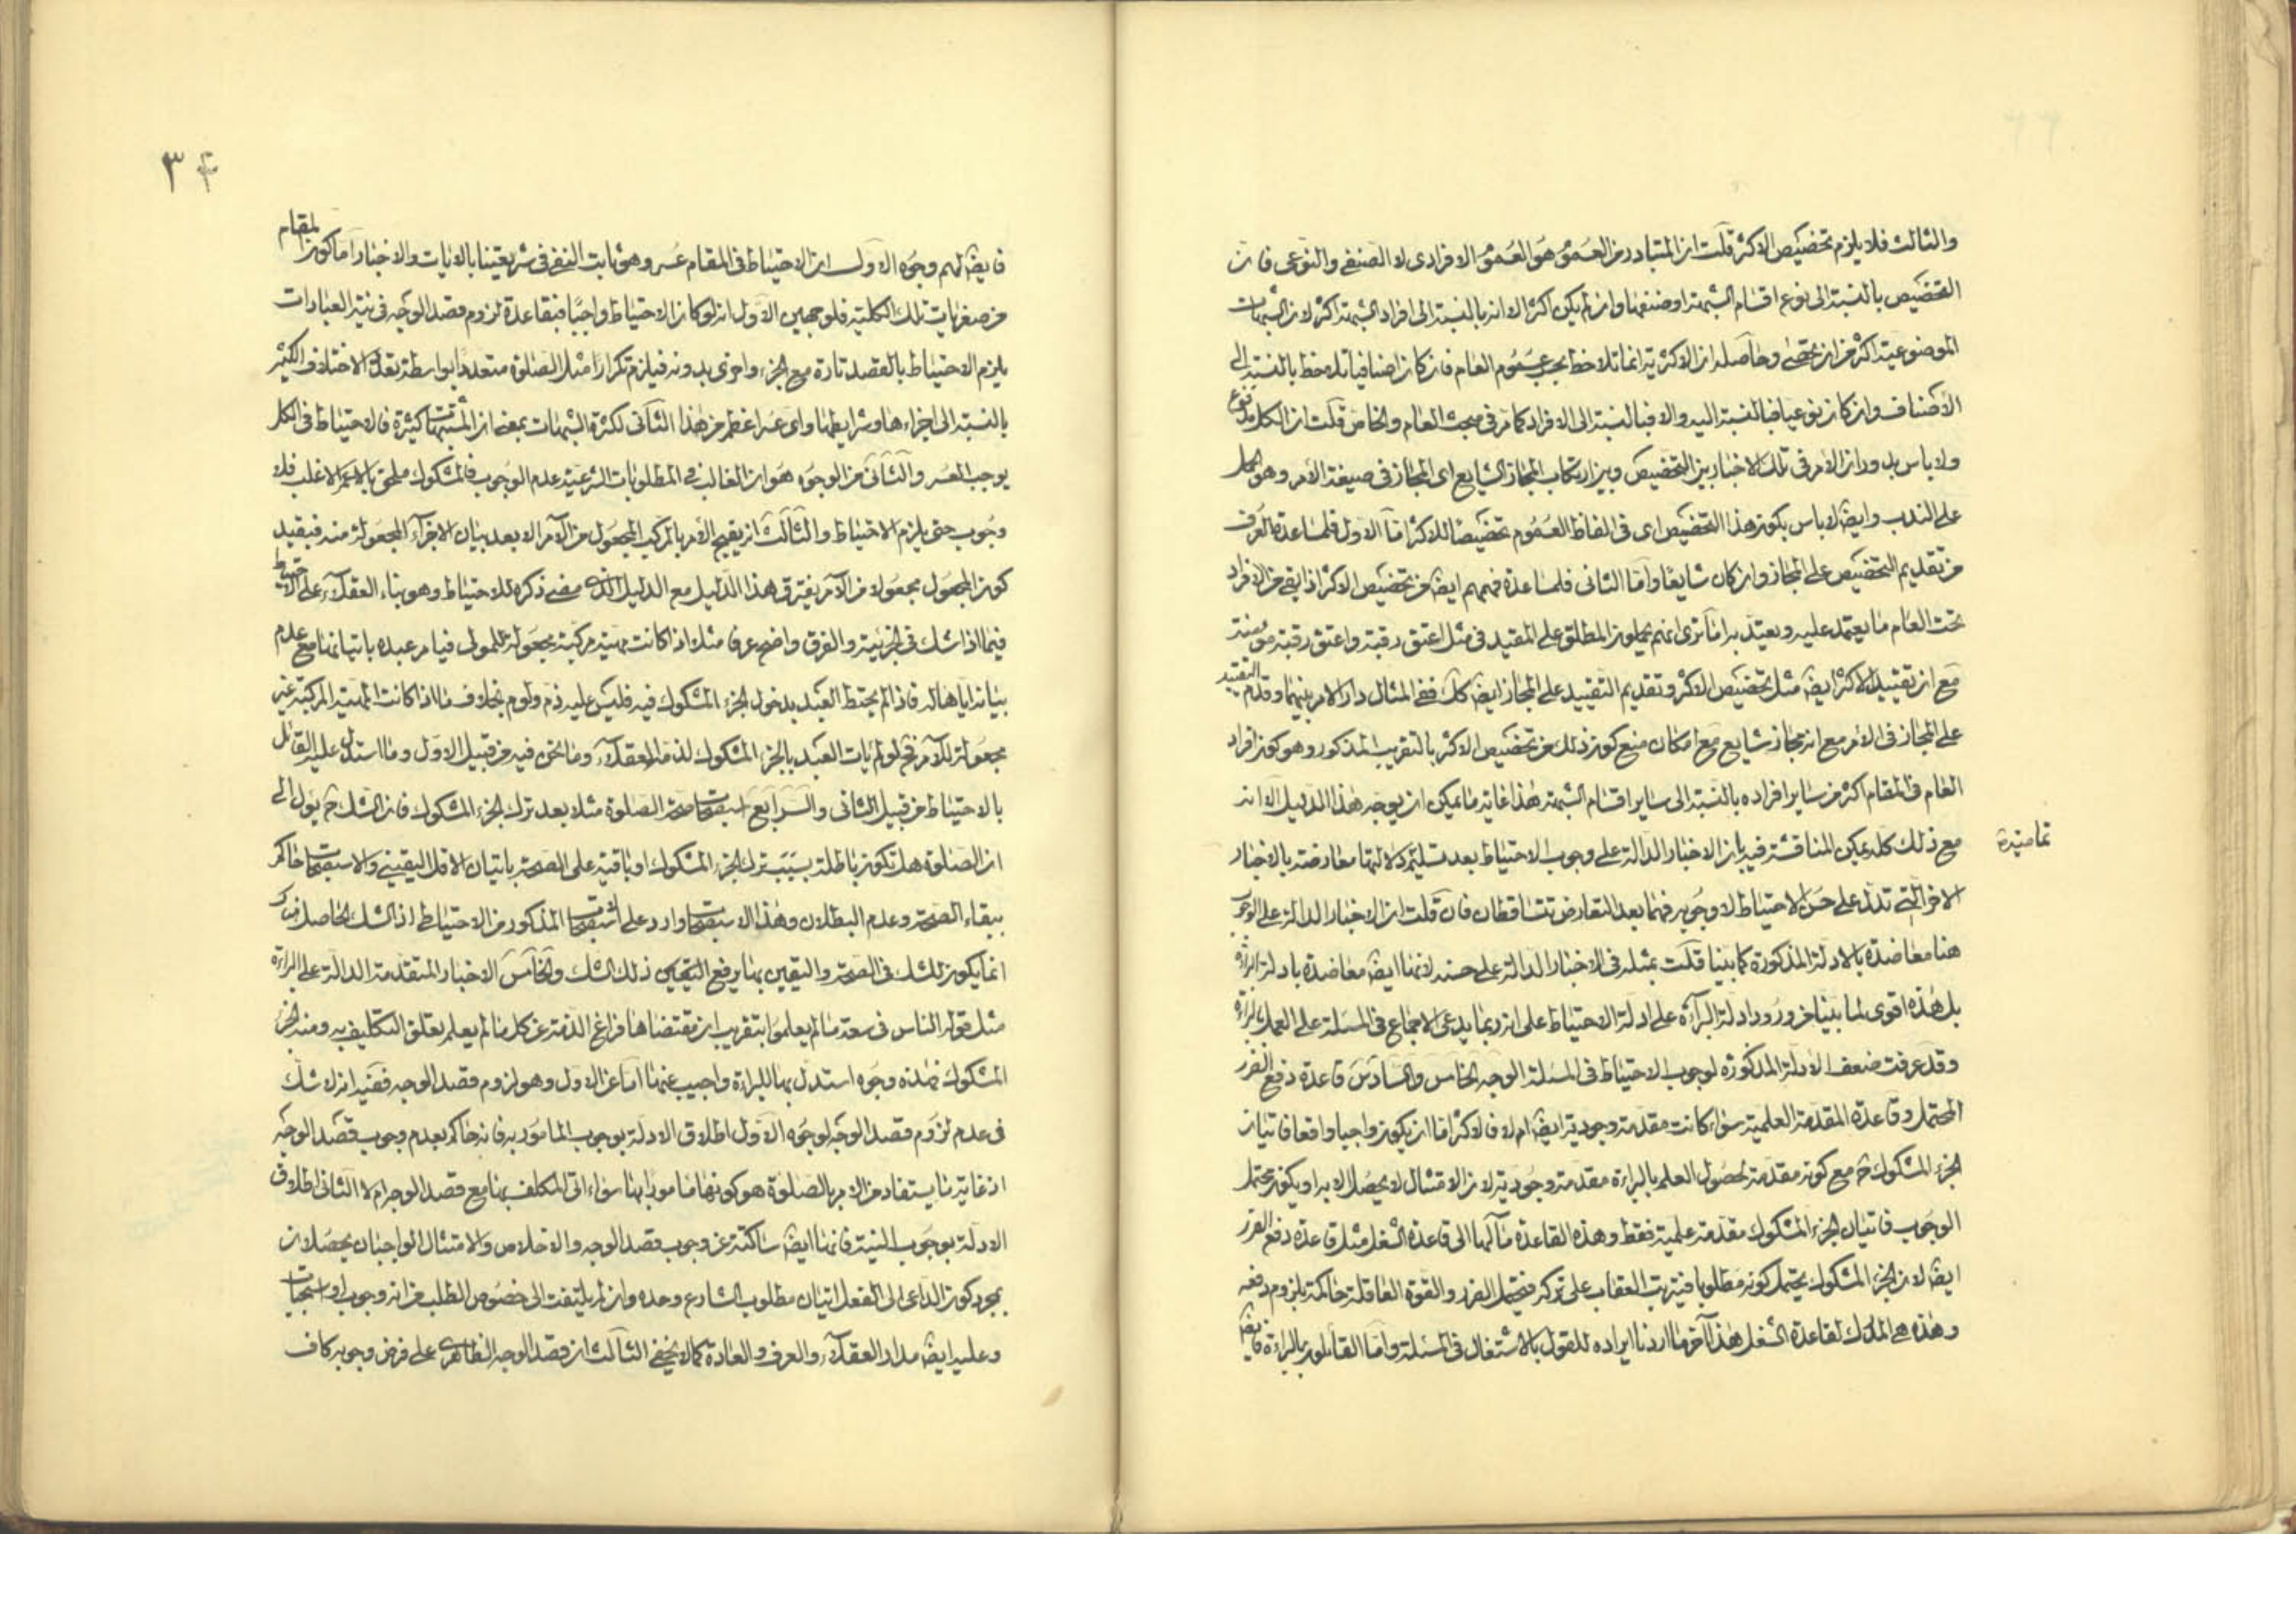 والثالث فلا يلزم تخصيص الاكثر قلت ان المتبادر من العموم هو العموم الافرادى لا الصنفى والنوعى فان
التخصيص بالنسبة الى نوع اقسام الشبهة او صنفها وان لم يكن اكثر الا انه بالنسبة الى افراد الشبهة اكثر لان الشبهات
الموضوعية اكثر من ان يحصى وحاصله ان الاكثرية انما تلاحظ بحسب عموم العام فان كان اضافيا تلاحظ بالنسبة الى
الاصناف وان كان نوعيا فبالنسبة اليه والا فبالنسبة الى الافراد كما مر فى مبحث العام والخاص قلت ان الكل مدفوع
ولا باس به ودان الامر فى تلك الاخبار بين التخصيص وبين ارتكاب المجاز الشايع اى المجاز فى صيغة الامر وهو الحمل
على الندب وايضا لاباس بكون هذا التخصيص اى فى الفاظ العموم تخصيصا للاكثر اما الاول فلمساعدة العرف
من تقديم التخصيص على المجاز وان كان شايعا واما الثانى فلمساعدة فهمهم ايضا من تخصيص الاكثر اذا بقى من الافراد
تحت العام ما يعتمد عليه ويعتد به اما ترى انهم يحملون المطلق على المقيد فى مثل اعتق رقبة واعتق رقبة مؤمنة
مع ان تقييد الاكثر ايضا مثل تخصيص الاكثر وتقديم التقييد على المجاز ايضا كك ففى المثال دار الامر بينهما وقدم التقييد
على المجاز فى الامر مع انه مجاز شايع مع امكان منع كون ذلك من تخصيص الاكثر بالتقريب المذكور وهو كون افراد
العام فى المقام اكثر من ساير افراده بالنسبة الى ساير اقسام الشبهة هذا غاية ما يمكن ان يوجه هذا الدليل الا انه
مع ذلك كله يمكن المناقشة فيه بان الاخبار الدالة على وجوب الاحتياط بعد تسليم دلالتها معارضة بالاخبار
الاخر التى تدل على حسن الاحتياط لا وجوبه فهما بعد التعارض تتساقطان فان قلت ان الاخبار الدالة على الوجوب
هنا معاضدة بالادلة المذكورة كما بينا قلت بمثله فى الاخبار الدالة على حسنه لانها ايضا معاضدة بادلة البراءة
بل هذه اقوى لما بينا من ورود ادلة البراءة على ادلة الاحتياط على انه ربما يدعى الاجماع فى المسئلة على العمل بالبراءة
وقد عرفت ضعف الادلة المذكورة لوجوب الاحتياط فى المسئلة الوجه الخامس والسادس قاعدة دفع الضرر
المحتمل وقاعدة المقدمة العلمية سواء كانت مقدمة وجودية ايضا ام لا فالاكثر اما ان يكون واجبا واقعا فاتيان
الجزء المشكوك ح مع كونه مقدمة لحصول العلم بالبراءة مقدمة وجودية لان الامتثال لا يحصل الا به او يكون محتمل
الوجوب فاتيان الجزء المشكوك مقدمة علمية فقط وهذه القاعدة مآلها الى قاعدة الشغل مثل قاعدة دفع الضرر
ايضا لان الجزء المشكوك يحتمل كونه مطلوبا فيترتب العقاب على تركه فيحتمل الضرر والقوة العاقلة حاكمة بلزوم دفعه
وهذه هى المدرك لقاعدة الشغل هذا آخر ما اردنا ايراده للقول بالاشتغال فى المسئلة واما القائلون بالبراءة
٣
فايضا لهم وجوه الاول ان الاحتياط فى المقام عسر وهو ثابت النفى فى شريعتنا بالايات والاخبار اما كون المقام
من صغريات تلك الكلية فلوجهين الاول انه لو كان الاحتياط واجبا فبقاعدة لزوم قصد الوجه فى نية العبادات
يلزم الاحتياط بالقصد تارة مع الجزء واخرى بدونه فيلزم تكرار مثل الصلوة متعددا بواسطة تعدد الاختلاف الكثير
بالنسبة الى اجزاءها وشرايطها واى عسر اعظم من هذا الثانى لكثرة الشبهات بمعنى ان المشتبهات كثيرة فالاحتياط فى الكل
يوجب العسر والثانى من الوجوه هو ان الغالب فى المطلوبات الشرعية عدم الوجوب فالمشكوك ملحق بالاعم الاغلب فلا
وجوب حتى يلزم الاحتياط والثالث انه يقبح الامر بالمركب المجعول من الآمر الا بعد بيان الاجزاء المجعولة منه فبقيد
كون المجعول مجعولا من الآمر يفترق هذا الدليل مع الدليل الذى مضى ذكره للاحتياط وهو بناء العقلاء على الاحتياط
فيما اذا شك فى الجزئية والفرق واضح عرفا مثلا اذا كانت مهية مركبة مجعولة للمولى فيامر عبده باتيانها مع عدم
بيانه اياها له فاذا لم يحتط العبد بدخول الجزء المشكوك فيه فليس عليه ذم ولوم بخلاف ما اذا كانت المهية المركبة غير
مجعولة للآمر فح لو لم يات العبد بالجزء المشكوك لذمه العقلاء وما نحن فيه من قبيل الاول وما استدل عليه القائل
بالاحتياط من قبيل الثانى والرابع استصحاب صحة الصلوة مثلا بعد ترك الجزء المشكوك فان الشك ح يؤل الى
ان الصلوة هل تكون باطلة بسبب ترك الجزء المشكوك او باقية على الصحة باتيان الاقل اليقينى والاستصحاب حاكم
ببقاء الصحة وعدم البطلان وهذا الاستصحاب وارد على استصحاب المذكور من الاحتياط اذ الشك الحاصل هناك
انما يكون للشك فى الصحة واليقين بها يرفع اليقين ذلك الشك والخامس الاخبار المتقدمة الدالة على البراءة
مثل قوله الناس فى سعة ما لم يعلموا بتقريب ان مقتضاها فراغ الذمة عن كل ما لم يعلم تعلق التكليف به ومنه الجزء
المشكوك فهذه وجوه استدل بها للبراءة واجيب عنها اما عن الاول وهو لزوم قصد الوجه ففيه انه لا شك
فى عدم لزوم قصد الوجه لوجوه الاول اطلاق الادلة بوجوب المامور به فانه حاكم بعدم وجوب قصد الوجه
اذ غاية ما يستفاد من الامر بالصلوة هو كونها مامورا بها سواء اتى المكلف بها مع قصد الوجه ام لا الثانى اطلاق
الادلة بوجوب النية فانها ايضا ساكتة عن وجوب قصد الوجه والاخلاص والامتثال الواجبان يحصلان
بمجرد كون الداعى الى الفعل اتيان مطلوب الشارع وحده وان لم يلتفت الى خصوص الطلب من انه وجوب او استحباب
وعليه ايضا مدار العقلاء والعرف والعادة كما لا يخفى الثالث ان قصد الوجه الظاهرى على فرض وجوبه كاف